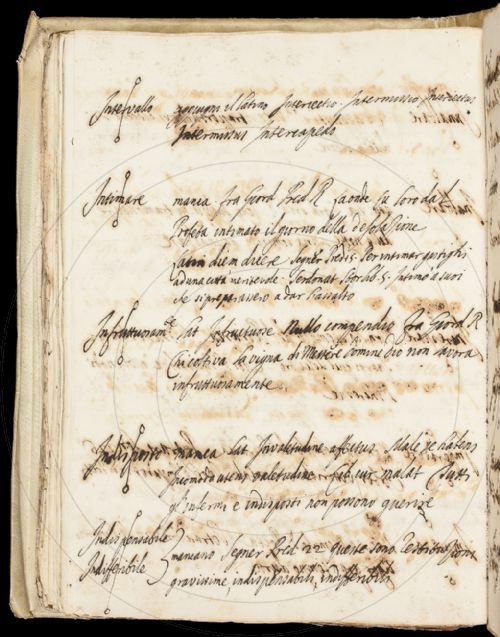 Intervallo aggiugni il latino Interiectio. Intermissio, Interiectus
Intermissus Intercapedo
Intimare manca fra Giord Pred R fa onde fu loro dal
Profeta intimato il giorno della desolazione
diem dicere Segner Pred. 5. Per intimar gastighi
ad una città meritevole. Bartol. 5. Intimò a suoi
che si preparassero a dar l'assalto
Infruttuosam.te Lat infructuose Nullo compendio fra Giord R
Chi coltiva la vigna di Messer Domine Dio non lavora
infruttuosamente
Indisposto manca Lat Invaletudine affectus Male se habens
Incommoda utens valetudine Tutti
gl'Infermi e indisposti non possono guerire
Indispensabile
Indifferibile mancano Segner Pred 22 queste sono restituzioni
gravissime, indispensabili, indifferibili